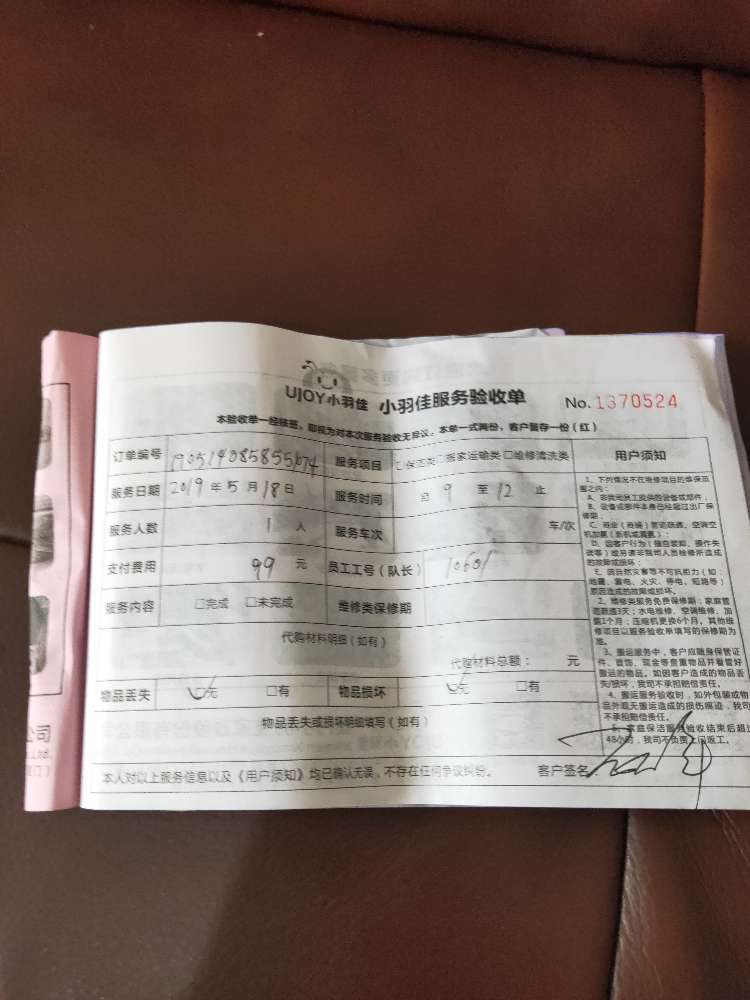 UJOY小羽佳 小羽佳服务验收单 No.1370524
本验收单一经核签，即视为对本次服务验收无异议；本单一式两份，客户暂存一份（红）
订单编号 服务项目 □保洁类 □搬家运输类 □维修清洗类 用户须知
服务日期 2019年5月18日 服务时间 自 9 至 12 止
服务人数 1人 服务车次 车/次
支付费用 99元 员工工号（队长） 10601
服务内容 □完成 □未完成 维修类保修期
代购材料明细（如有）
代购材料总额： 元
物品丢失 无 □有 物品损坏 无 □有
物品丢失或损坏明细填写（如有）
本人对以上服务信息以及《用户须知》均已确认无误，不存在任何争议纠纷。 客户签名
1、下列情况不在维修项目的维保范
围之内：
A、非我司员工提供的设备或部件；
B、设备或部件本身已经超过出厂保
修期；
C、商业（商铺）管道疏通、空调空
机加氟（新机或漏氟）；
D、因客户行为（擅自装卸、操作失
误等）或另请非我司人员检修所造成
的故障或损坏；
E、因自然灾害等不可抗拒力（如：
地震、雷电、火灾、停电、短路等）
原因造成的故障或损坏。
2、维修类服务免费保修期：家庭管
道疏通3天；水电维修、空调维修、加
氟1个月；压缩机更换6个月，其他维
修项目以服务验收单填写的保修期为
准。
3、搬运服务中，客户应随身保管证
件、首饰、现金等贵重物品并看管好
搬运的物品。如因客户造成的物品丢
失/损坏，我司不承担赔偿责任。
4、搬运服务验收时，如外包装或物
品外观无搬运造成的损伤痕迹，我司
不承担赔偿责任。
5、家庭保洁服务验收结束后超过
48小时，我司不负责上门返工。
公司